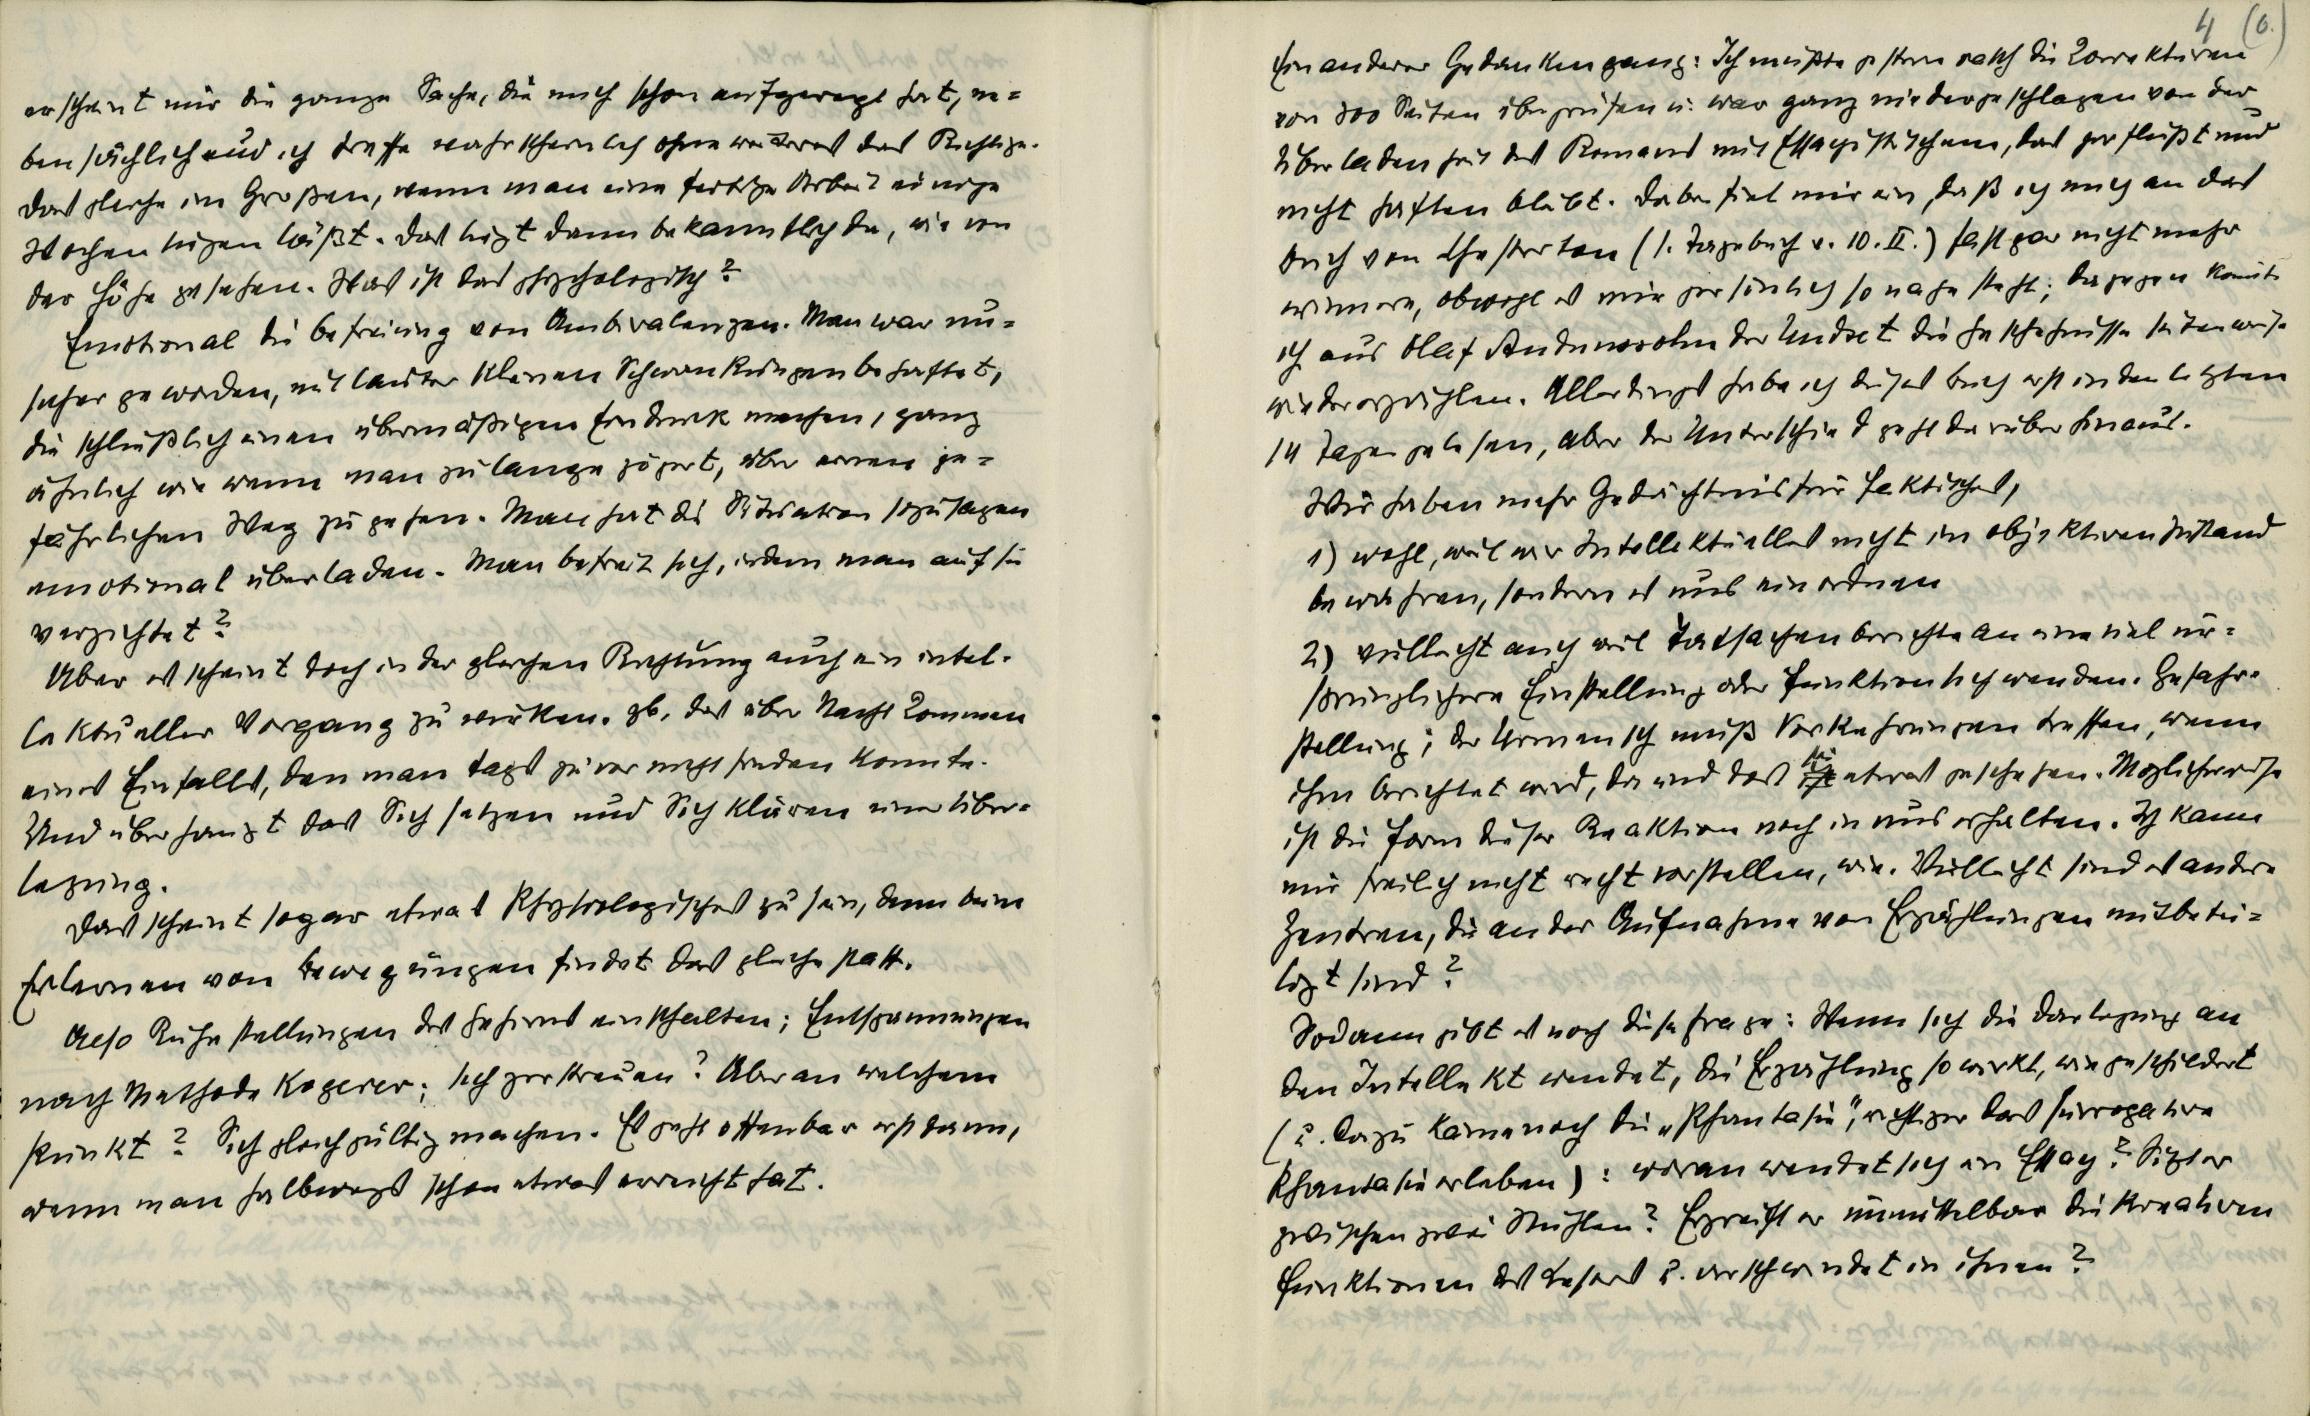 erscheint mir die ganze Sache, die mich schon aufgeregt hat, ne=
bensächlich und ich treffe wahrscheinlich ohneweiteres das Richtige.
Das gleiche im Großen, wenn man eine fertige Arbeit einige
Wochen liegen läßt. Das liegt dann bekanntlich da, wie von
der Höhe gesehen. Was ist das psychologisch?
Emotional die Befreiung von Ambivalenzen. Man war un=
sicher geworden, mit lauter kleinen Schwankungen behaftet,
die schließlich einen übermäßigen Eindruck machen, ganz
ähnlich wie wenn man zulange zögert, über einen ge=
fährlichen Weg zu gehen. Man hat die Situation sozusagen
emotional überladen. Man befreit sich, indem man auf sie
verzichtet?
Aber es scheint doch in der gleichen Richtung auch ein intel-
lektueller Vorgang zu wirken. zb. das über Nacht Kommen
eines Einfalls, den man tags zuvor nicht finden konnte.
Und überhaupt das Sich setzen und Sich klären einer Über=
legung.
Das scheint sogar etwas Physiologisches zu sein, denn beim
Erlernen von Bewegungen findet das gleiche statt.
Also Ruhestellungen des Gehirns einschalten; Entspannungen
nach Methode Kogerer; sich zerstreuen? Aber an welchem
Punkt? Sich gleichgültig machen. Es geht offenbar erst dann,
wenn man halbwegs schon etwas erreicht hat.
4 (6.)
Ein anderer Gedankengang: Ich mußte gestern rasch die Korrekturen
von 300 Seiten überprüfen u. war ganz niedergeschlagen von der
Überladenheit des Romans mit Essayistischem, das zerfließt und
nicht haften bleibt. Dabei fiel mir ein, daß ich mich an das
Buch von Chesterton (s. Tagebuch v. 10. II.) fast gar nicht mehr
erinnere, obwohl es mir persönlich so nahe steht; dagegen könnte
ich aus Olaf Audunssohn der Undset die Geschehnisse seitenweise
wiedererzählen. Allerdings habe ich dieses Buch erst in den letzten
14 Tagen gelesen, aber der Unterschied geht darüber hinaus.
Wir haben mehr Gedächtnis für Faktisches,
1) wohl, weil wir Intellektuelles nicht im objektiven Zustand
bewahren, sondern es uns einordnen
2) vielleicht auch weil Tatsachenberichte an eine viel ur=
sprünglichere Einstellung oder Funktion sich wenden. Gefahr-
stellung; der Urmensch muß Vorkehrungen treffen, wenn
ihm berichtet wird, da und das sei etwas geschehen. Möglicherweise
ist die Form dieser Reaktion noch in uns erhalten. Ich kann
mir freilich nicht recht vorstellen, wie. Vielleicht sind es andere
Zentren, die an der Aufnahme von Erzählungen mitbetei=
ligt sind?
Sodann gibt es noch diese Frage: Wenn sich die Darlegung an
den Intellekt wendet, die Erzählung so wirkt, wie geschildert
(u. dazu käme noch die „Phantasie", richtiger das surrogative
Phantasieerleben): woran wendet sich ein Essay? Sitzt er
zwischen zwei Stühlen? Ergreift er unmittelbar die kreativen
Funktionen des Lesers u. verschwindet in ihnen?